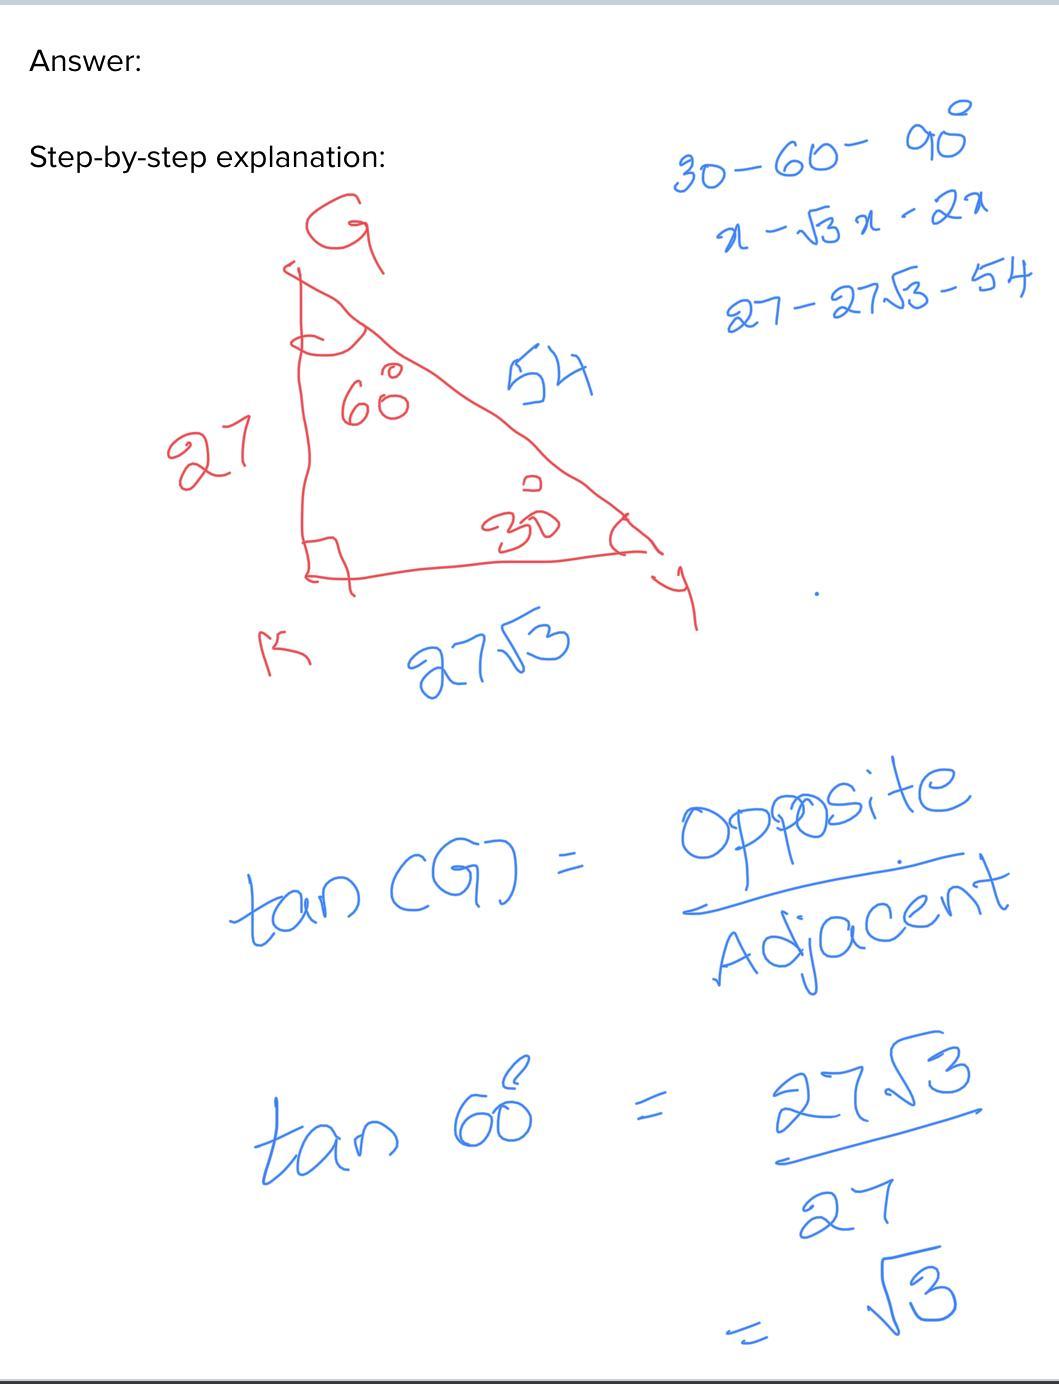 Answer:
Step-by-step explanation:
30-60-90°
x-√3x-2x
27-27√3-54
G
60°
54
27
30°
K
Y
27√3
tan(G) = Opposite
Adjacent
tan 60° = 27√3
27
= √3